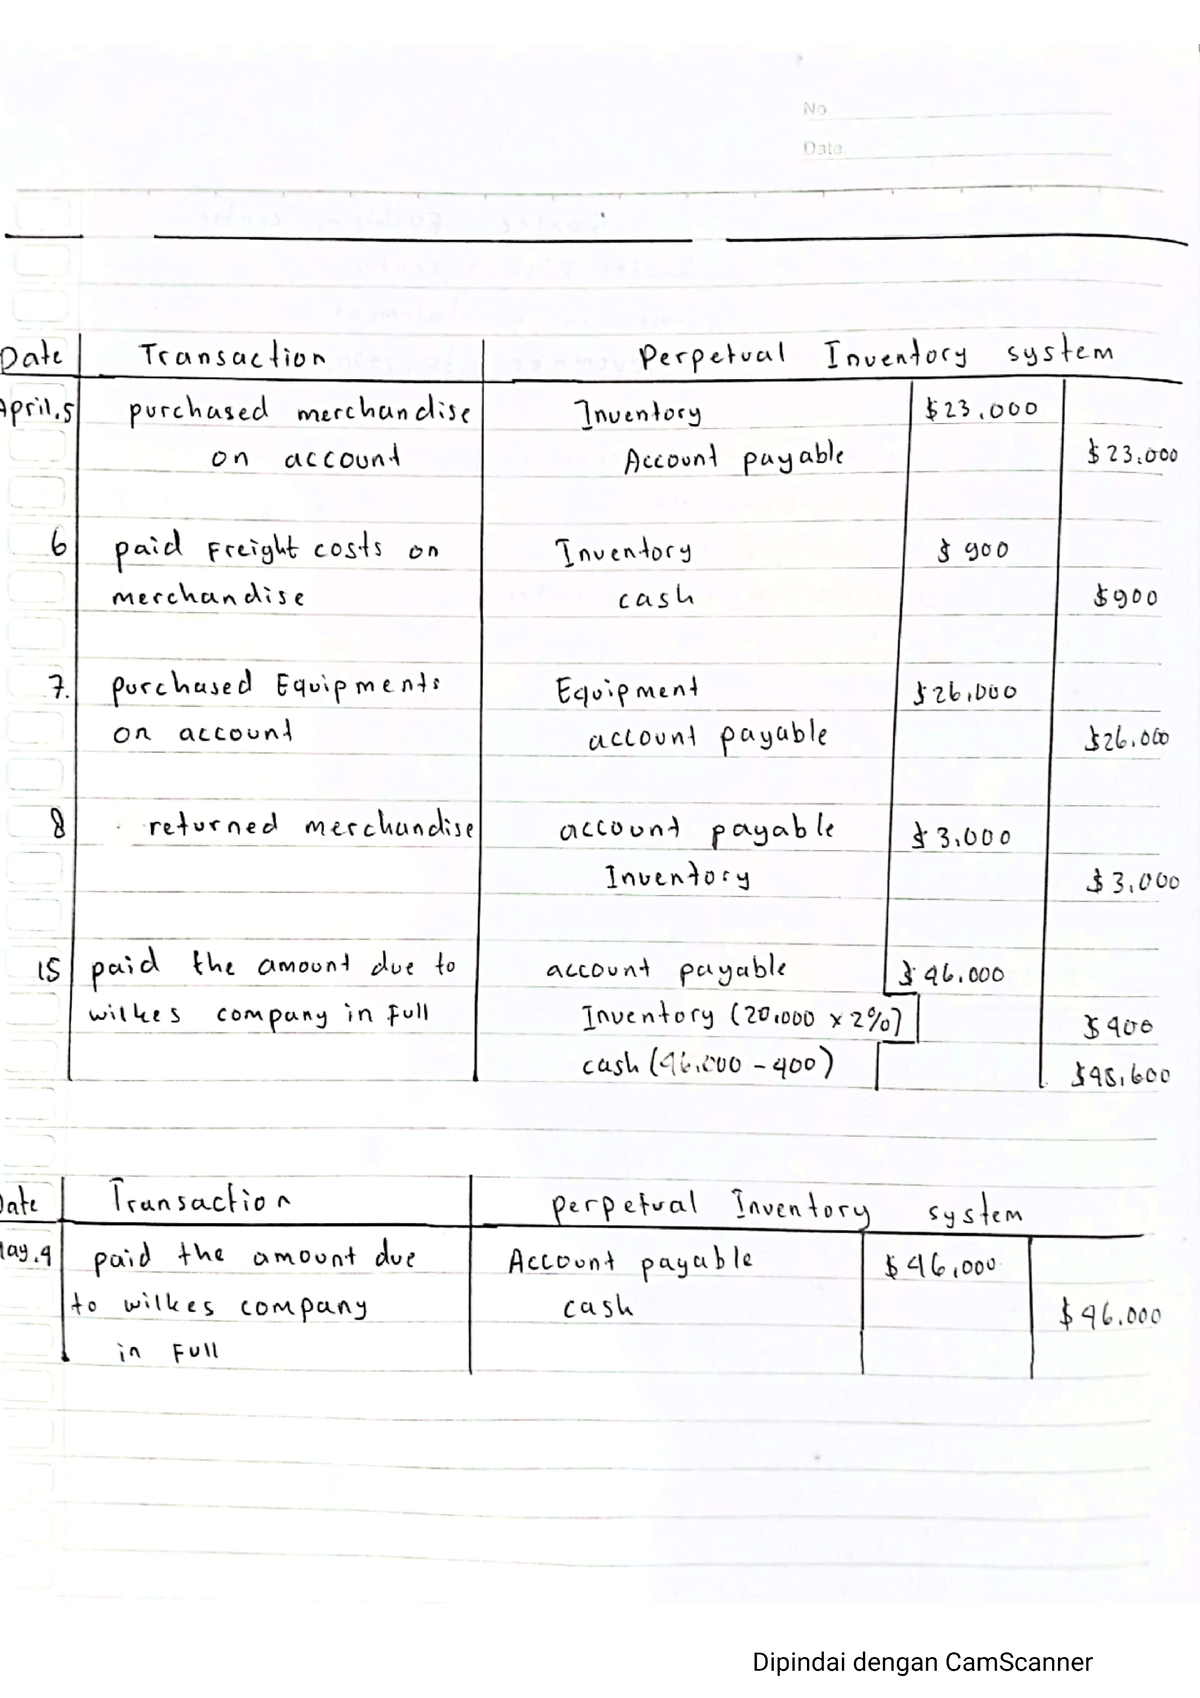 No
Date
Date Transaction Perpetual Inventory system
April.5 purchased merchandise Inventory $23.000
on account Account payable $23.000
6 paid Freight costs on Inventory $ 900
merchandise cash $900
7. purchased Equipments Equipment $26.000
on account account payable $26.000
8 returned merchandise account payable $3.000
Inventory $3.000
15 paid the amount due to account payable $46.000
wilkes company in full Inventory (20.000 x 2%) $400
cash (46.000 - 400) $45.600
Date Transaction perpetual Inventory system
May.4 paid the amount due Account payable $46.000
to wilkes company cash $46.000
in Full
Dipindai dengan CamScanner